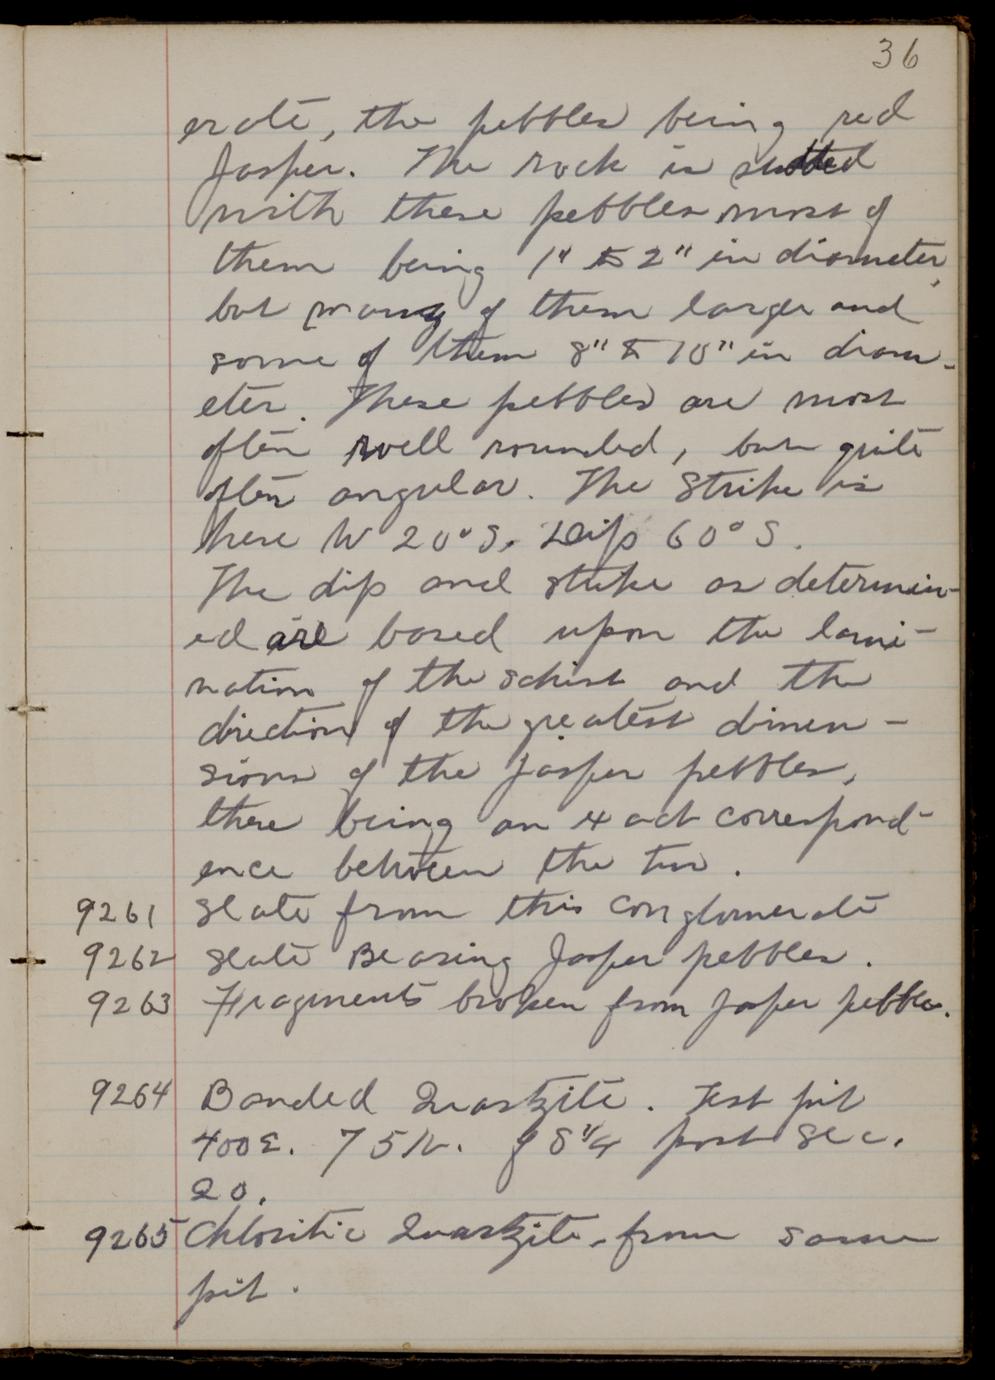 36
erate, the pebbles being red
Jasper. The rock is studded
with these pebbles most of
them being 1" to 2" in diameter,
but many of them larger and
some of them 8" & 10" in diam-
eter. These pebbles are most
often well rounded, but quite
often angular. The Strike is
here W 20° S. Dip 60° S.
The dip and strike as determin-
ed are based upon the lami-
nation of the schist and the
direction of the greatest dimen-
sions of the Jasper pebbles,
there being an exact correspond-
ence between the two.
9261 Slate from this conglomerate
9262 Slate Bearing Jasper pebbles.
9263 Fragments broken from Jasper pebbles.
9264 Banded Quartzite. Test pit
400 E. 75 N. of S 1/4 post Sec.
20.
9265 Chloritic Quartzite from same
pit.